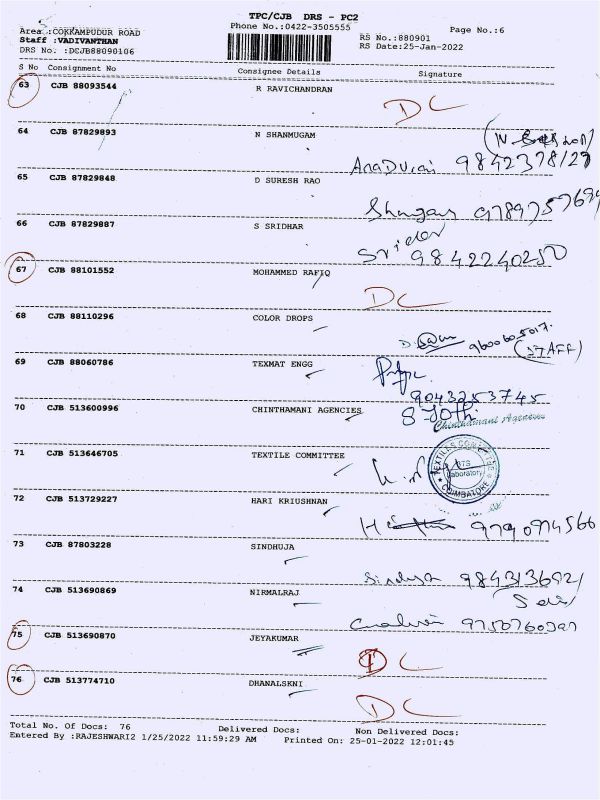 TPC/CJB DRS - PC2
Phone No.:0422-3505555
Page No.:6
Area :COKKAMPUDUR ROAD
Staff :VADIVANTHAN
DRS No. :DCJB88090106
RS No.:880901
RS Date:25-Jan-2022
S No Consignment No Consignee Details Signature
63 CJB 88093544 R RAVICHANDRAN
DC
64 CJB 87829893 N SHANMUGAM
65 CJB 87829848 D SURESH RAO
66 CJB 87829887 S SRIDHAR
Sridar
9842240250
67 CJB 88101552 MOHAMMED RAFIQ
DC
68 CJB 88110296 COLOR DROPS
(STAFF)
69 CJB 88060786 TEXMAT ENGG
9043253745
70 CJB 513600996 CHINTHAMANI AGENCIES
Chinthamani Agencies
71 CJB 513646705 TEXTILE COMMITTEE
TEXTILES COMMITTEE
Laboratory
COIMBATORE
72 CJB 513729227 HARI KRIUSHNAN
73 CJB 87803228 SINDHUJA
74 CJB 513690869 NIRMALRAJ
75 CJB 513690870 JEYAKUMAR
DC
76 CJB 513774710 DHANALSKNI
DC
Total No. Of Docs: 76 Delivered Docs: Non Delivered Docs:
Entered By :RAJESHWARI2 1/25/2022 11:59:29 AM Printed On: 25-01-2022 12:01:45